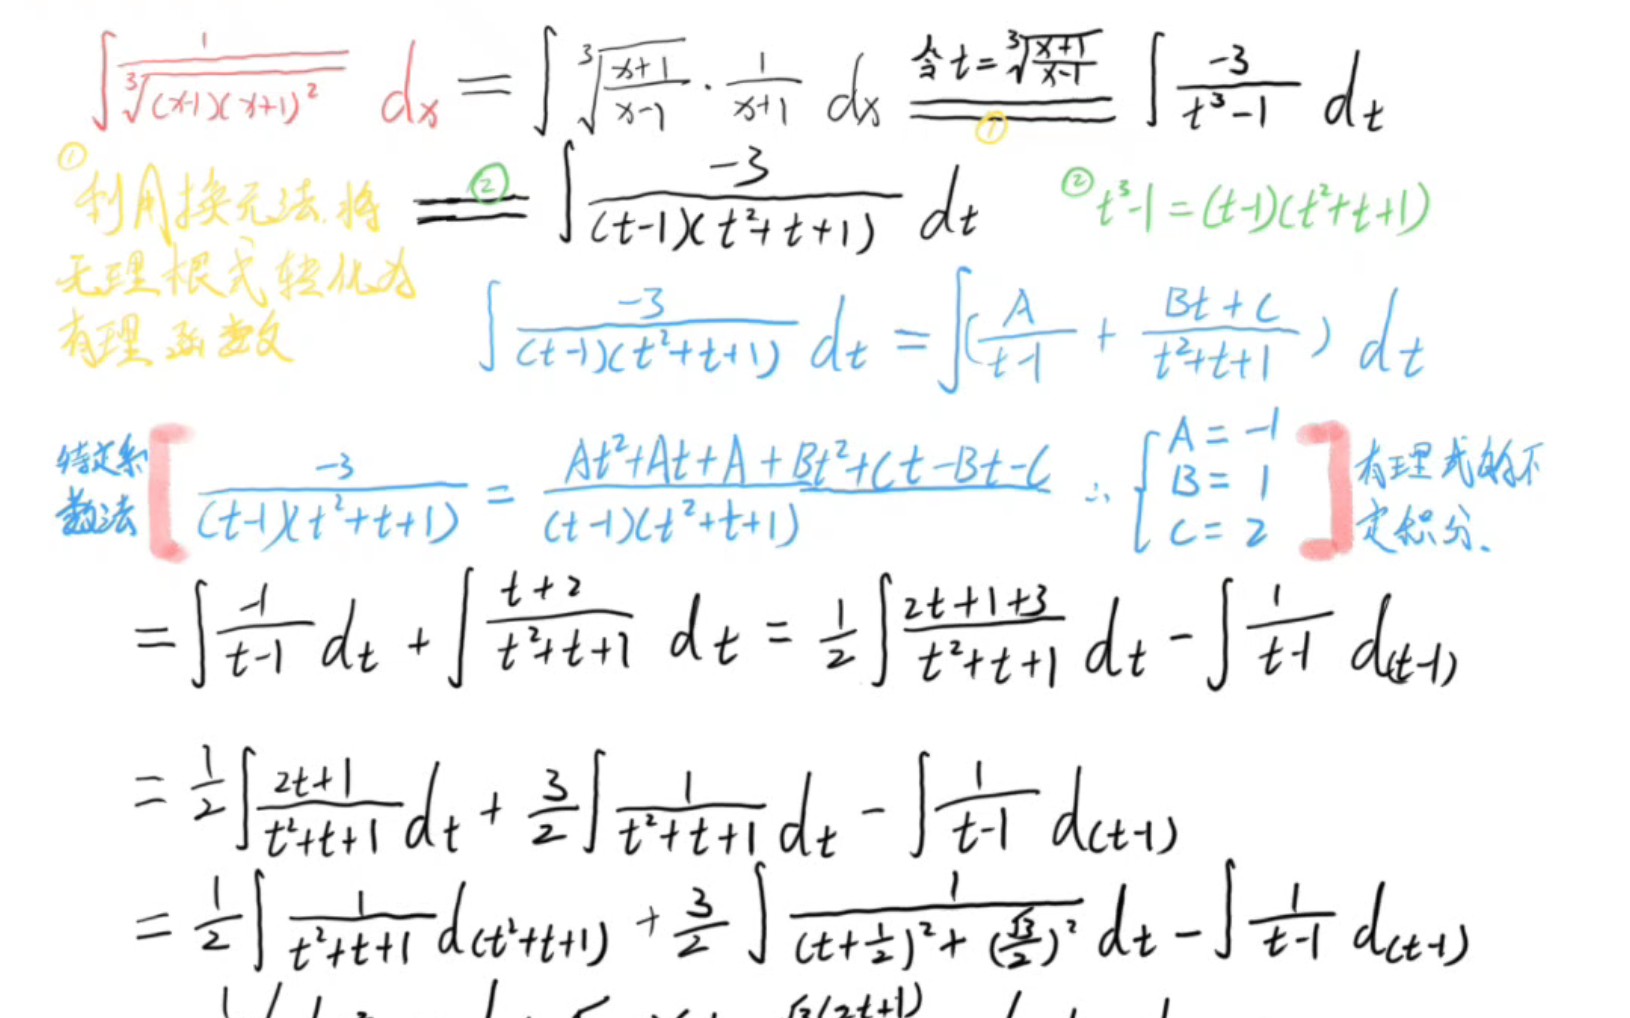 ∫ 1/∛((x-1)(x+1)²) dx = ∫ ∛((x+1)/(x-1)) · 1/(x+1) dx 令 t = ∛((x+1)/(x-1)) ① ∫ -3/(t³-1) dt
① 利用换元法,将
无理根式转化为
有理函数
= ② ∫ -3/((t-1)(t²+t+1)) dt
② t³-1 = (t-1)(t²+t+1)
∫ -3/((t-1)(t²+t+1)) dt = ∫(A/(t-1) + (Bt+C)/(t²+t+1)) dt
待定系
数法
[ -3/((t-1)(t²+t+1)) = (At²+At+A+Bt²+Ct-Bt-C)/((t-1)(t²+t+1)) ∴ { A = -1
B = 1
C = 2 ]
有理式的不
定积分.
= ∫ -1/(t-1) dt + ∫ (t+2)/(t²+t+1) dt = 1/2 ∫ (2t+1+3)/(t²+t+1) dt - ∫ 1/(t-1) d(t-1)
= 1/2 ∫ (2t+1)/(t²+t+1) dt + 3/2 ∫ 1/(t²+t+1) dt - ∫ 1/(t-1) d(t-1)
= 1/2 ∫ 1/(t²+t+1) d(t²+t+1) + 3/2 ∫ 1/((t+1/2)²+(√3/2)²) dt - ∫ 1/(t-1) d(t-1)
√3(2t+1)